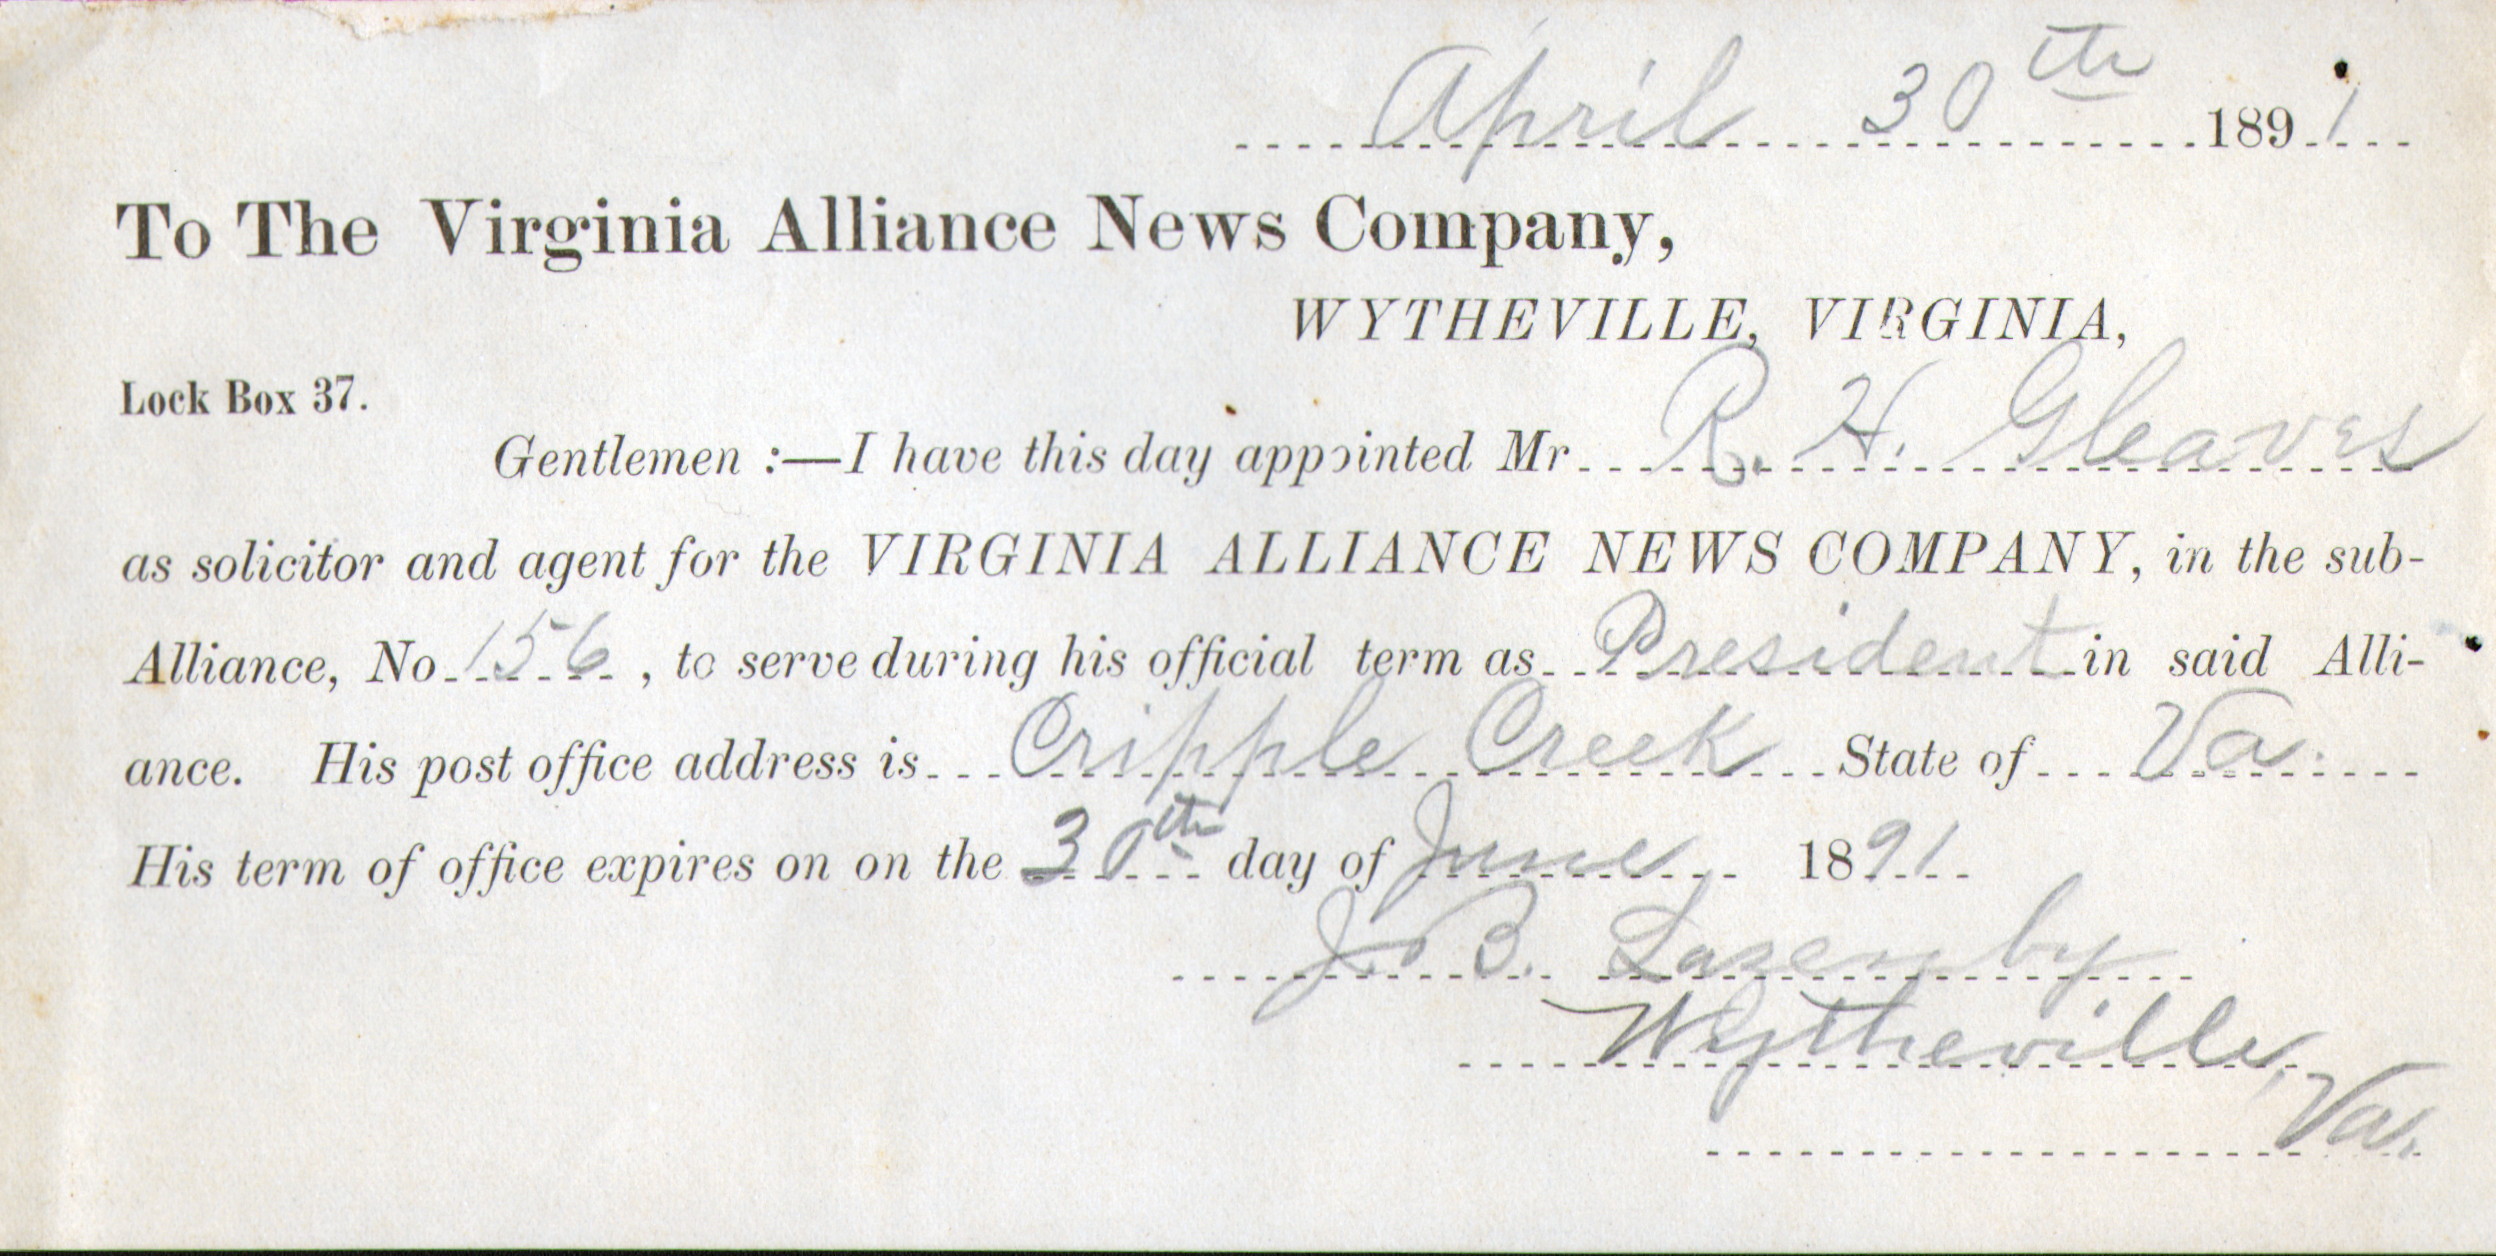 April 30th 1891
To The Virginia Alliance News Company,
WYTHEVILLE, VIRGINIA,
Lock Box 37.
Gentlemen :—I have this day appointed Mr R. H. Gleaves
as solicitor and agent for the VIRGINIA ALLIANCE NEWS COMPANY, in the sub-
Alliance, No 156, to serve during his official term as President in said Alli-
ance. His post office address is Cripple Creek State of Va.
His term of office expires on on the 30th day of June 1891
J. B. Lazenby
Wytheville,
Va.